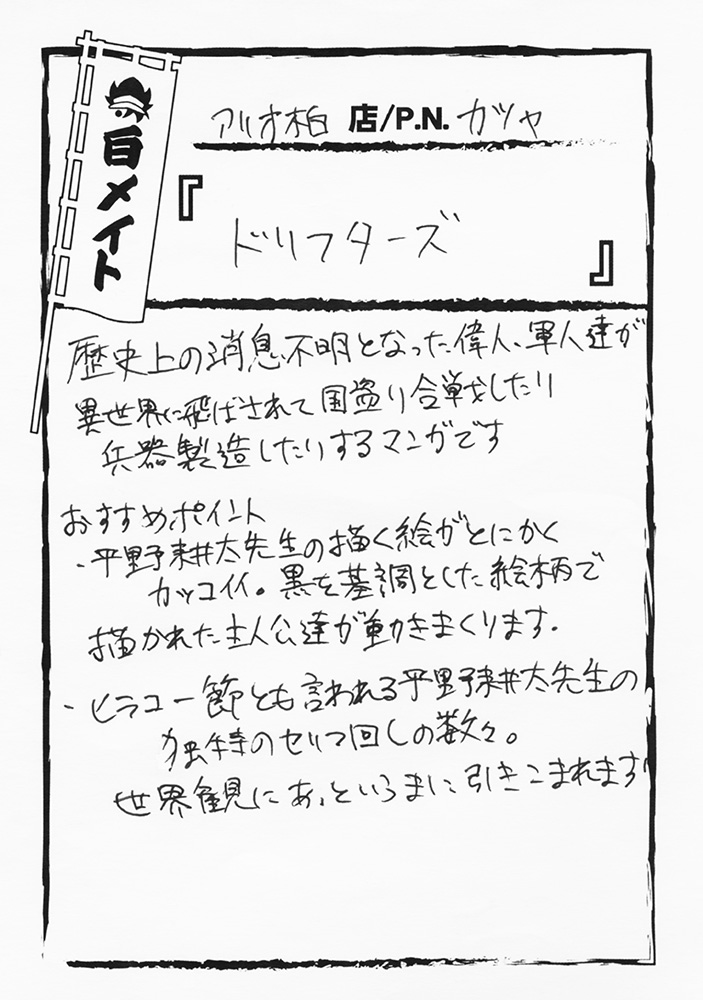 百メイト
アリオ柏 店/P.N. カツヤ
『ドリフターズ』
歴史上の消息不明となった偉人、軍人達が
異世界に飛ばされて国盗り合戦したり
兵器製造したりするマンガです
おすすめポイント
・平野耕太先生の描く絵がとにかく
カッコイイ。黒を基調とした絵柄で
描かれた主人公達が動きまくります。
・ヒラコー節とも言われる平野耕太先生の
独特のセリフ回しの数々。
世界観にあっというまに引きこまれます